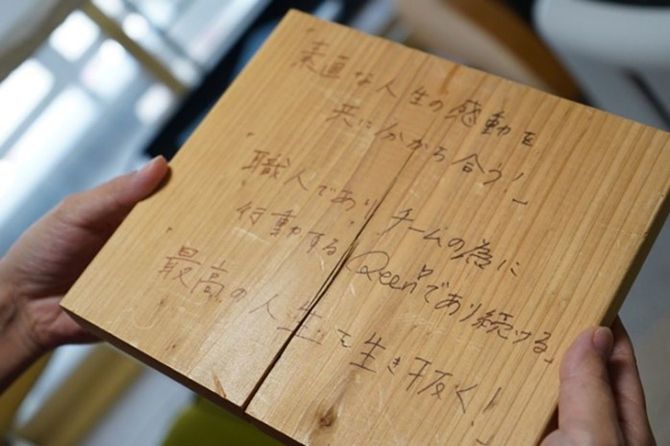 「素直な人生の感動を
共に分かち合う!」
「職人であり チームの為に
行動する Qeenであり続ける。」
「最高の人生を生き抜く!